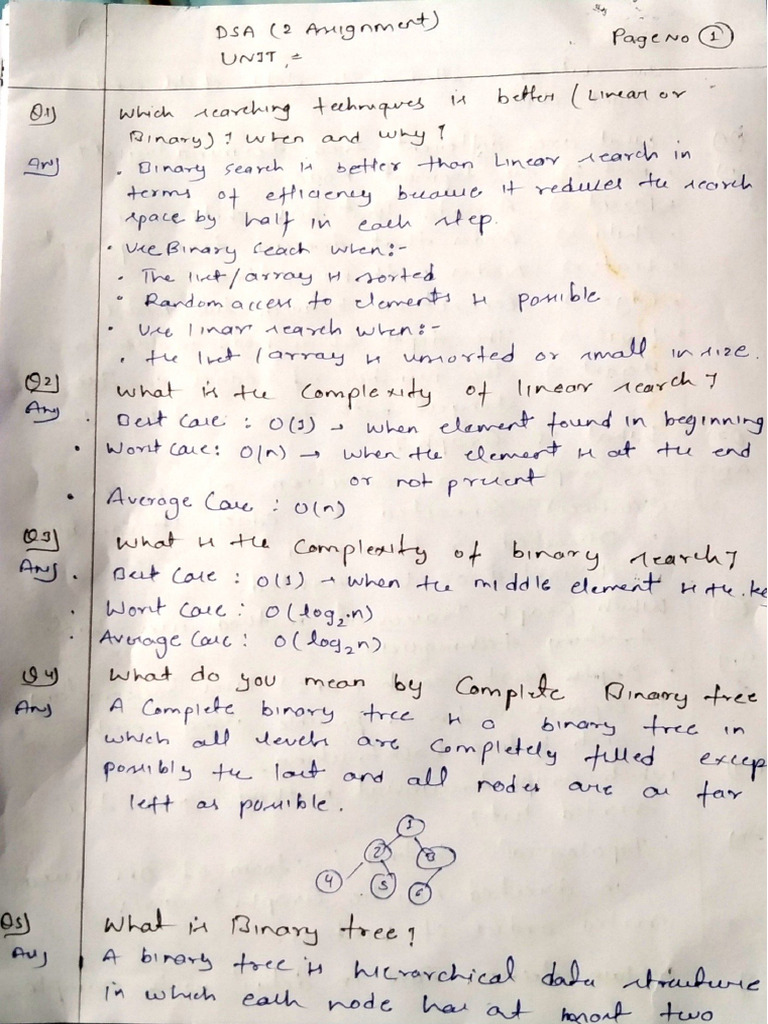 DSA (2 Assignment)
Page No 1
UNIT =
Q1) Which searching techniques is better (Linear or
Binary)? When and why?
Ans) . Binary search is better than Linear search in
terms of efficiency because it reduces the search
space by half in each step.
. Use Binary Seach when:-
. The list/array is sorted
. Random access to elements is possible
. Use linar search when:-
. the list/array is unsorted or small in size.
Q2) What is the Complexity of linear search?
Ans . Best Case : O(1) → when element found in beginning
. Worst Case: O(n) → when the element is at the end
or not present
. Average Case : O(n)
Q3) What is the Complexity of binary search?
Ans . Best Case : O(1) → when the middle element is the ke
. Worst Case : O(log₂n)
. Average Case : O(log₂n)
Q4) What do you mean by Complete Binary tree
Ans A Complete binary tree is a binary tree in
which all levels are Completely filled excep
possibly the last and all nodes are as far
left as possible.
1
2 3
4 5 6
Q5) What is Binary tree?
Ans A binary tree is hierarchical data structure
in which each node has at most two